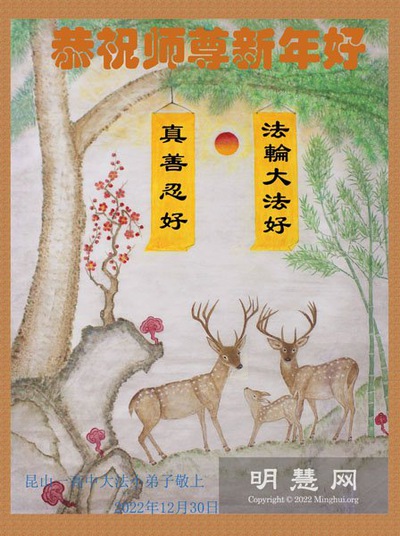 恭祝师尊新年好
真善忍好
法輪大法好
昆山一
中大法小弟子敬上
2022年12月30日
明慧网
Copyright © 2022 Minghui.org